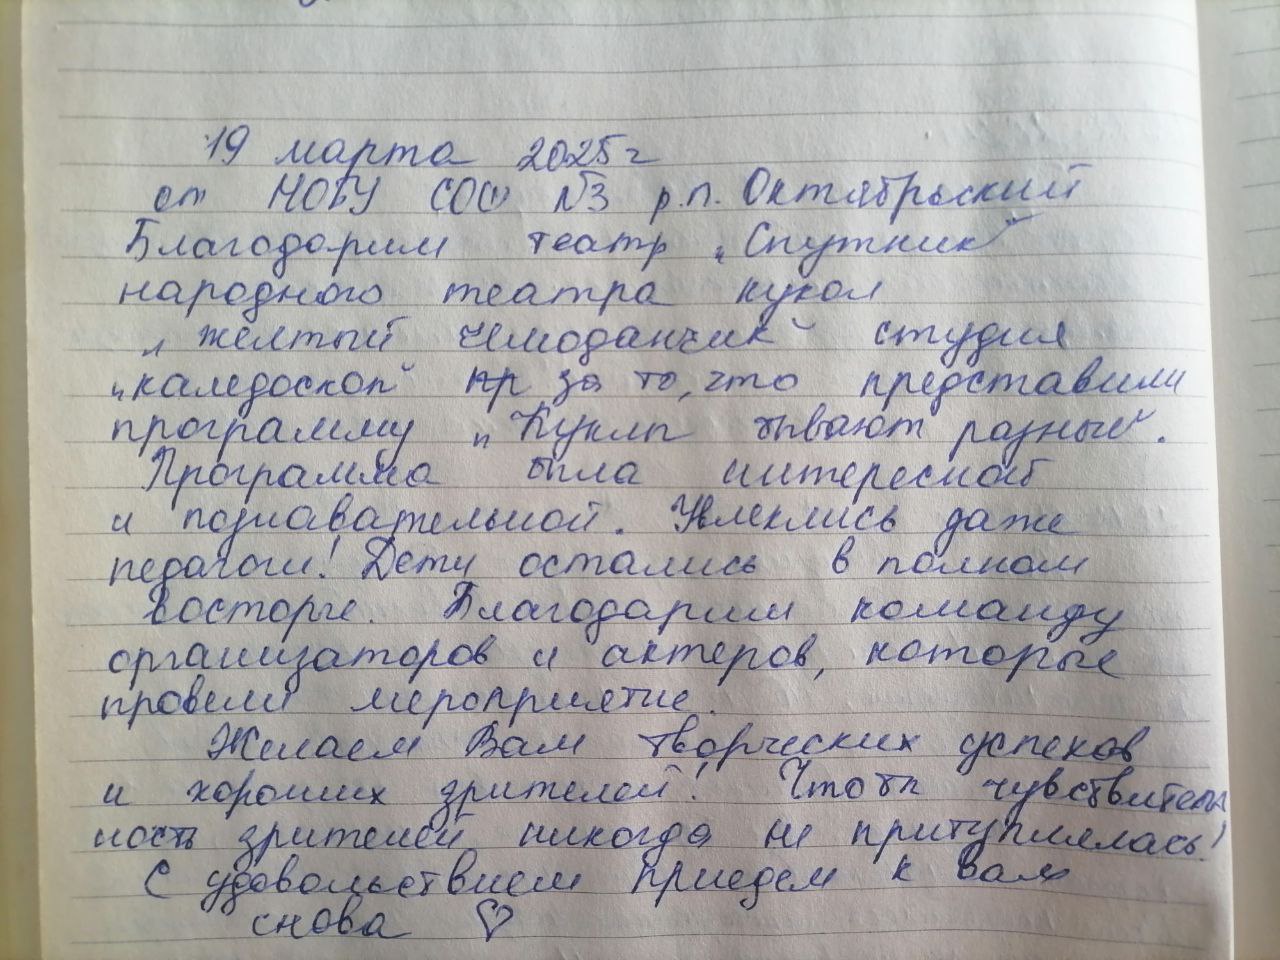 19 марта 2025 г
от МОБУ СОШ №3 р.п. Октябрьский
Благодарим театр „Спутник"
народного театра кукол
„желтый чемоданчик" студия
„каледоскоп" за то, что представили
программу „Куклы бывают разные".
Программа была интересной
и познавательной. Увлеклись даже
педагоги! Дети остались в полном
восторге. Благодарим команду
организаторов и актеров, которые
провели мероприятие.
Желаем Вам творческих успехов
и хороших зрителей! Чтобы чувствитель
ность зрителей никогда не притуплялась!
С удовольствием приедем к вам
снова ♡